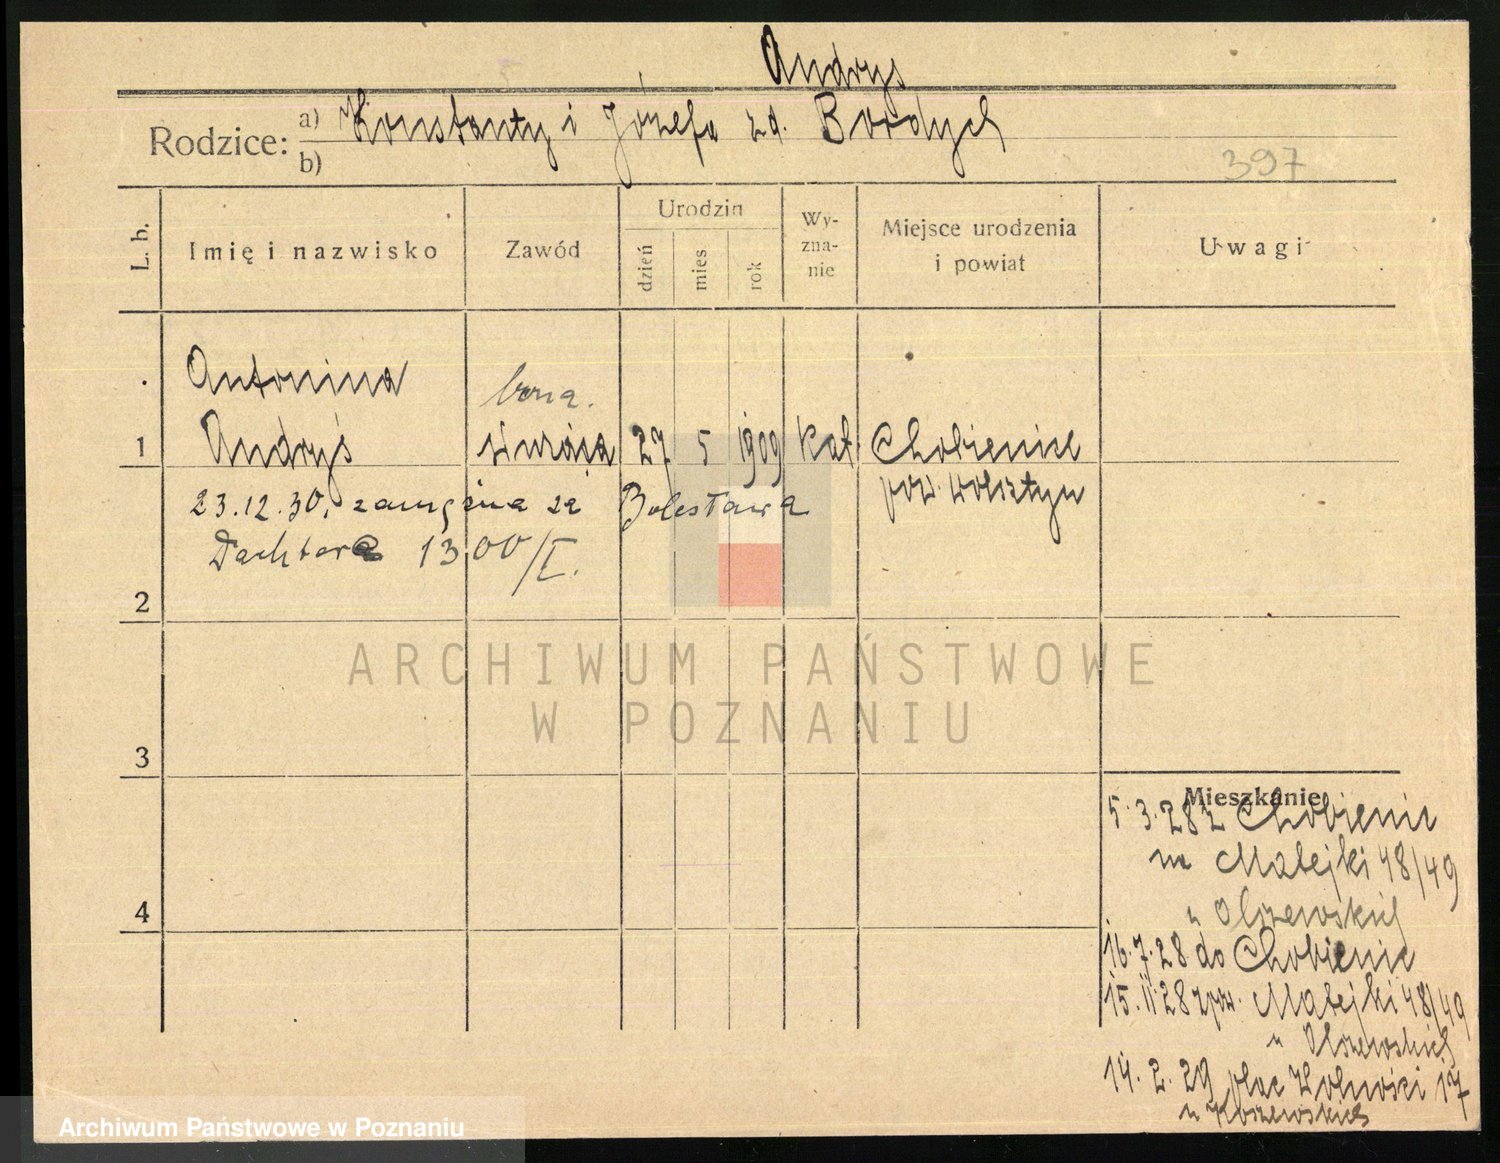 Andrys
Rodzice: a) Konstanty i Józefa zd. Bordych
b)
397
L. b.
Imię i nazwisko
Zawód
Urodzin
dzień
mies
rok
Wy-
zna-
nie
Miejsce urodzenia
i powiat
Uwagi
Antonina
1 Andryś służąca 27 5 1909 kat. Chobienice
pow. Wolsztyn
23.12.30. zamężna za Bolesława
Dachtera 1300/I.
2
3
4
Mieszkanie
5.3.28 z Chobienic
na Matejki 48/49
u Olszewskich
16.7.28 do Chobienic
15.11.28 zpow. Matejki 48/49
u Olszewskich
14.2.29 plac Wolności 17
u Koszewskich
ARCHIWUM PAŃSTWOWE
W POZNANIU
Archiwum Państwowe w Poznaniu